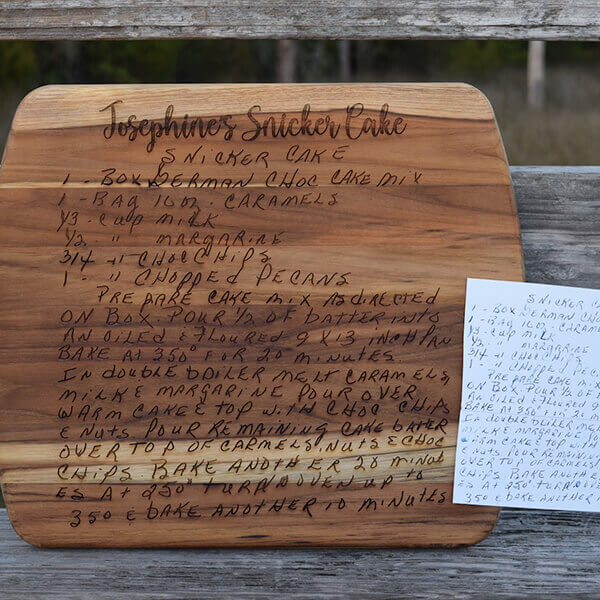 Josephine's Snicker Cake
SNICKER CAKE
1 - BOX GERMAN CHOC CAKE MIX
1 - BAG 16 OZ. CARAMELS
1/3 - CUP MILK
1/2 " MARGARINE
3/4 - " CHOC CHIPS
1 - " CHOPPED PECANS
PREPARE CAKE MIX AS DIRECTED
ON BOX. POUR 1/2 OF BATTER INTO
AN OILED & FLOURED 9 X 13 INCH PAN
BAKE AT 350° FOR 20 MINUTES.
IN DOUBLE BOILER MELT CARAMELS,
MILK & MARGARINE POUR OVER
WARM CAKE & TOP WITH CHOC CHIPS
& NUTS. POUR REMAINING CAKE BATER
OVER TOP OF CARMELS, NUTS & CHOC
CHIPS. BAKE ANOTHER 20 MINUT
ES AT 250° TURN OVEN UP TO
350 & BAKE ANOTHER 10 MINUTES
SNICKER
1 - BOX GERMAN CHO
1 - BAG 16 OZ. CARAM
1/3 - CUP MILK
1/2 MARGARINE
3/4 - " CHOC CHIPS
CHOPPED PECA
PREPARE CAKE MIX
ON BOX. POUR 1/2 OF
AN OILED & FLOURED
BAKE AT 350° FOR 20
IN DOUBLE BOILER M
MILK & MARGARINE PO
WARM CAKE & TOP W
& NUTS. POUR REMAIN
OVER TOP OF CARMELS
CHIPS. BAKE ANOTH
ES AT 250° TURN OV
350 & BAKE ANOTHER 1